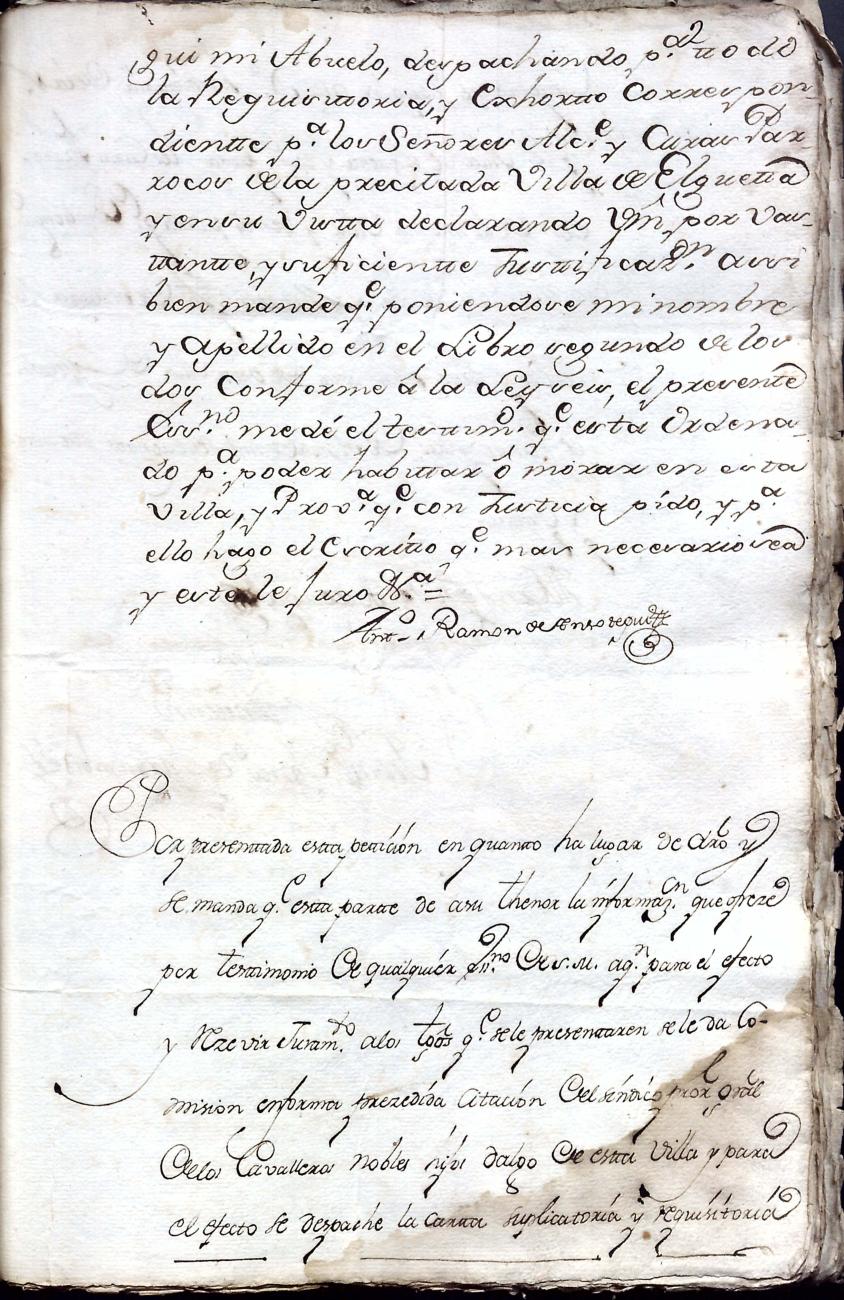 qui mi Abuelo, despachando p.ª tto de
la Requisittoria, y Exhortto Correspon-
diente p.ª los Señores Alc.e y Curas Par-
rocos de la precitada Villa de Elguetta
y en su Vistta declarando Vm, por vas-
ttantte, y suficientte Justtificaz.on assi
bien mande q.e poniendose mi nombre
y apellido en el Libro segundo de los
dos Conforme â la Ley seis, el presente
Ess.no me dé el testtim.o q.e està Ordena-
do p.ª poder habittar ô morar en esta
Villa, y Prov.ª q.e con Justicia pido, y p.ª
ello hago el Escritto q.e mas necesario sea
y este le Juro &.ª =
Antt.o Ramon de
Por presenttada estta petición en quanto ha lugar de dro y
se manda q.e estta parte de a su thenor la informaz.on que ofreze
por testimonio de qualquier Ess.no de S.M. aq.n para el efecto
y Rzevir Juram.to a los tgos q.e se le presentaren se le da Co-
mision en forma prezedida Citación del síndico pror gral
de los Cavalleros nobles hijos dalgo de estta Villa y para
el efecto se despache la cartta suplicatoria y requisitoria